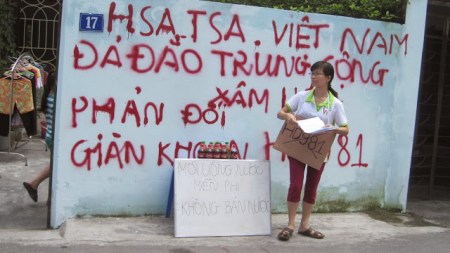 17
HSA.TSA. VIỆT NAM
ĐẢ ĐẢO TRUNG CỘNG
XÂM
PHẢN ĐỐI
GIÀN KHOAN H 81
HD981
MỜI UỐNG NƯỚC
MIỄN PHÍ
KHÔNG BÁN NƯỚC